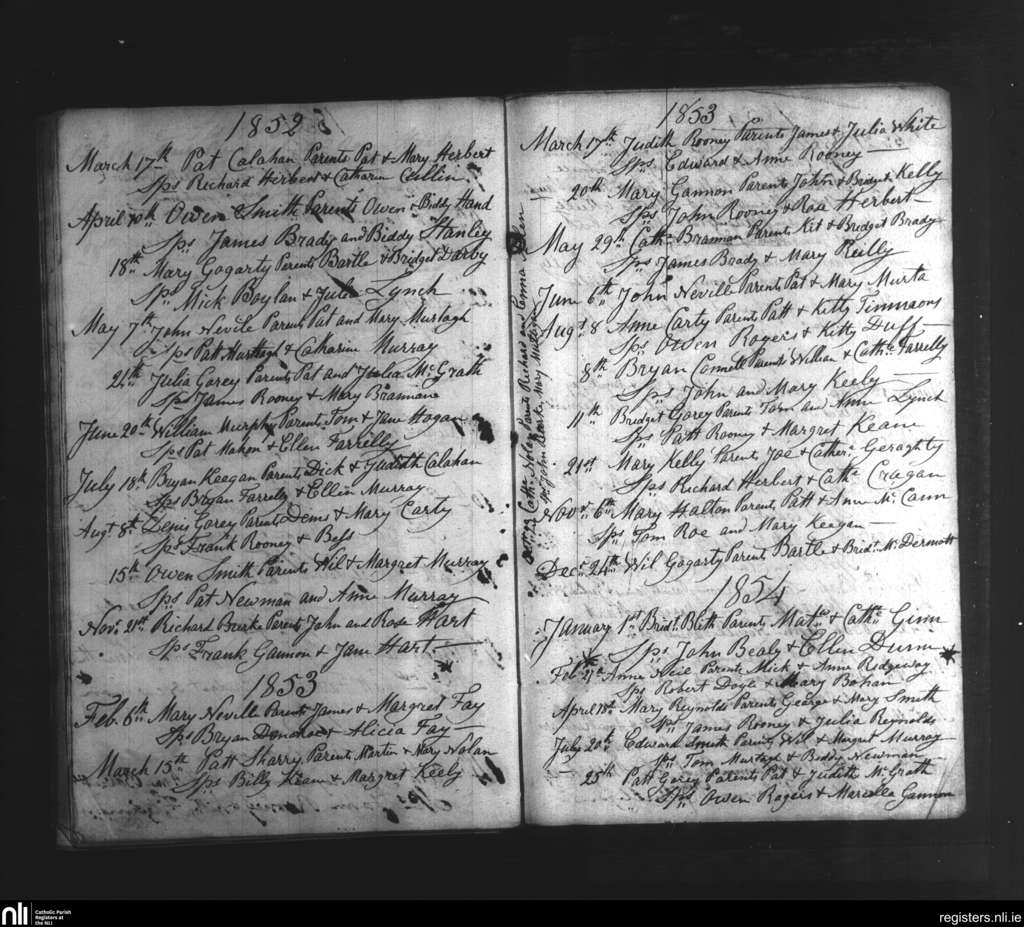 1852
March 17th Pat Calahan Parents Pat & Mary Herbert
Sps Richard Herbert & Catharin Cullin
April 10th Owen Smith Parents Owen & Biddy Hand
Sps James Brady and Biddy Stanley
18th Mary Gogarty Parents Bartle & Bridget Darby
Sps Mick Boylan & Lynch
May 7th John Nevile Parents Pat and Mary Murtagh
Sps Patt Murtagh & Catharine Murray
24th Julia Gorey Parents Pat and Julia McGrath
Sps James Rooney & Mary Brannan
June 20th William Murphy Parents Tom & Jane Hogan
Sps Pat Mahon & Ellen Farrelly
July 18th Bryan Keagan Parents Dick & Judith Calahan
Sps Bryan Farrelly & Ellen Murray
Augt 8th Denis Gorey Parents Denis & Mary Carty
Sps Frank Rooney & Bess
15th Owen Smith Parents Wil & Margaet Murray
Sps Pat Newman and Anne Murray
Novr 21st Richard Burke Parents John and Rose Hart
Sps Frank Gannon & Jane Hart
1853
Feb. 6th Mary Neville Parents James & Margret Fay
Sps Bryan Donohoe & Alicia Fay
March 15th Patt Sharry Parents Martin & Mary Nolan
Sps Billy Kean & Margret Keely
Cathe Nolan Parents Richard and Emma
John Mary
1853
March 17th Judith Rooney Parents James & Julia White
Sps Edward & Anne Rooney
20th Mary Gannon Parents John & Bridget Kelly
Sps John Rooney & Rose Herbert
May 29th Cathe Brannan Parents Kit & Bredget Brady
Sps James Brady & Mary Reilly
June 6th John Neville Parents Pat & Mary Murta
Augt 8 Anne Carty Parents Patt & Kitty Timmons
Sps Owen Rogers & Kitty Duff
8th Bryan Connell Parents William & Cathe Farrelly
Sps John and Mary Keely
11th Bridget Gorey Parents Tom and Anne Lynch
Sps Patt Rooney & Margret Keane
21st Mary Kelly Parents Joe & Cather Geraghty
Sps Richard Herbert & Cathe Cragan
Novr 6th Mary Halton Parents Patt & Anne McCann
Sps Tom Roe and Mary Keegan
Decr 24th Wil Gogarty Parents Bartle & Bridt McDermott
1854
January 1st Bridt Parents Mat & Cathe Ginn
Sps John Bealy & Ellen Dunn
Feb 21st Anne Parents Mick & Anne Ridgeway
Sps Robert Doyle & Mary Bohan
April 18th Mary Reynolds Parents George & Mary Smith
Sps James Rooney & Julia Reynolds
July 20th Edward Smith Parents Wil & Margret Murray
Sps Tom Murtagh & Biddy Newman
25th Patt Gorey Parents Pat & Judith McGrath
Sps Owen Rogers & Marcella Gannon
nli Catholic Parish Registers at the NLI
registers.nli.ie